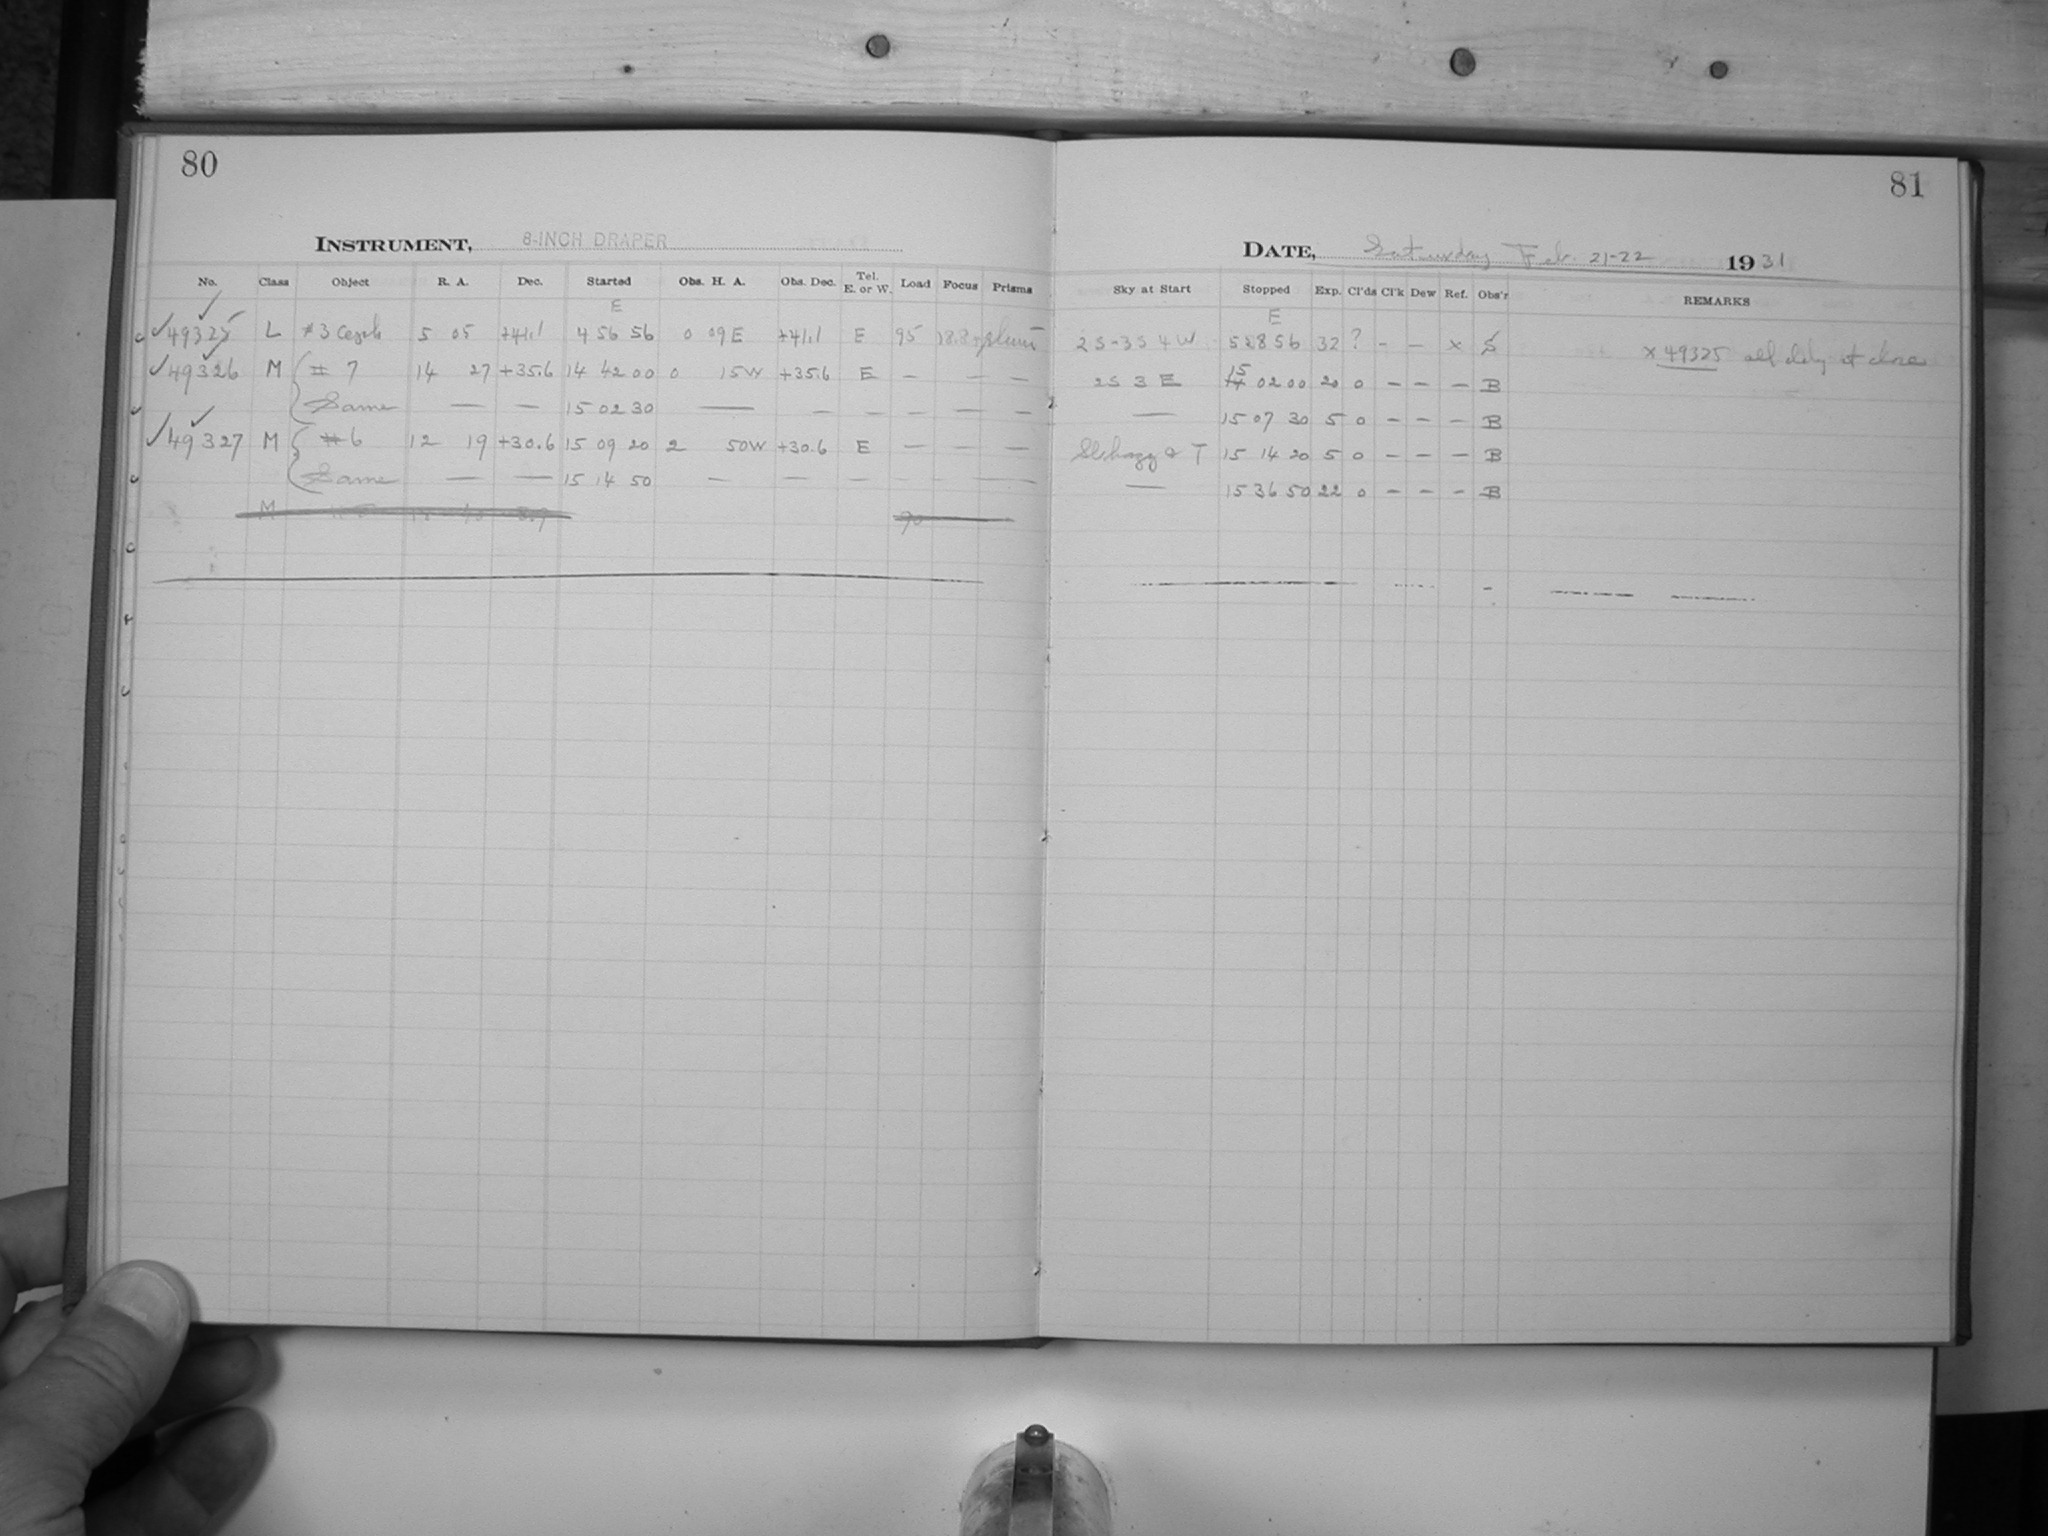 80
INSTRUMENT, 8-INCH DRAPER
No. Class Object R. A. Dec. Started Obs. H. A. Obs. Dec. Tel. E. or W. Load Focus Prisms
E
✓49325 L #3 5 05 +41.1 4 56 56 0 09 E +41.1 E 95
✓49326 M # 7 14 27 +35.6 14 42 00 0 15W +35.6 E — — —
Same — — 15 02 30 — — — — — —
✓49327 M #6 12 19 +30.6 15 09 20 2 50W +30.6 E — — —
Same — — 15 14 50 — — — — — —
M 90
81
DATE, Saturday Feb. 21-22 1931
Sky at Start Stopped Exp. Cl'ds Cl'k Dew Ref. Obs'r REMARKS
E
2S-3S 4W 5 28 56 32 ? - — x S x 49325 all at close
2S 3 E 15 02 00 20 0 — — — B
— 15 07 30 5 0 — — — B
Sl hazy & T 15 14 20 5 0 — — — B
— 15 36 50 22 0 — — — B